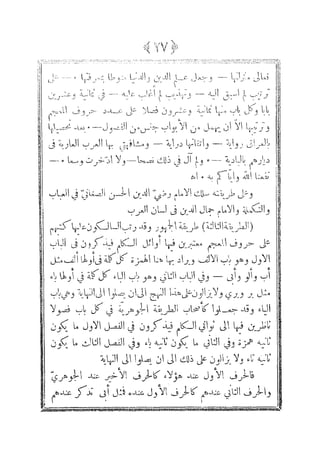 ﴿ ٢٧ ﴾
تعالى منزلتها — وجعل علم الدين والدنيا منوطا بمعرفتها • — على
ترتيب لم اسبق اليه — وتهذيب لم أغلب عليه — فى ثمانية وعشرين
بابا وكل باب منها ثمانية وعشرون فصلا على عدد حروف المعجم
وترتيبها الا ان يهمل من الأبواب جنس من الفصول — • بعد تحصيلها
بالعراق رواية — واتقانها دراية — ومشافهتى بها العرب العاربة فى
ديارهم بالبادية — • ولم آل فى ذلك نصحا — ولا ادّخرت وسعا • —
نفعنا الله وايّاكم به • اه
وعلى طريقته سلك الامام رضىّ الدين الحسن الصغانىّ فى العباب
والتكملة والامام جمال الدين فى لسان العرب
(الطريقة الثالثة) طريقة الجمهور وقد رتب السالكون عليها كتبهم
على حروف المعجم معتبرين فيها أوائل الكلم فيذكرون فى الباب
الاول وهو باب الالف ويراد بها هنا الهمزة كل كلة فى أولها ألف مثل
أب وألو وأبى — وفى الباب الثانى وهو باب الباء كل كلة فى أولها باء
مثل بر وبرى ولا يزالون على هذا النهج الى ان يصلوا الى النهاية وهى باب
الياء وقد جعلوا كأصحاب الطريقة الجوهرية فى كل باب فصولا
ناظرين فيها الى ثوانى الكلم فيذكرون فى الفصل الاول ما يكون
ثانيه همزة وفى الثانى ما يكون ثانيه باء وفى الفصل الثالث ما يكون
ثانيه تاء ولا يزالون على ذلك الى ان يصلوا الى النهاية
فالحرف الأول عند هؤلاء كالحرف الأخير عند الجوهرىّ
والحرف الثانى عندهم كالحرف الأول عنده فمثل أبى تذكر عندهم